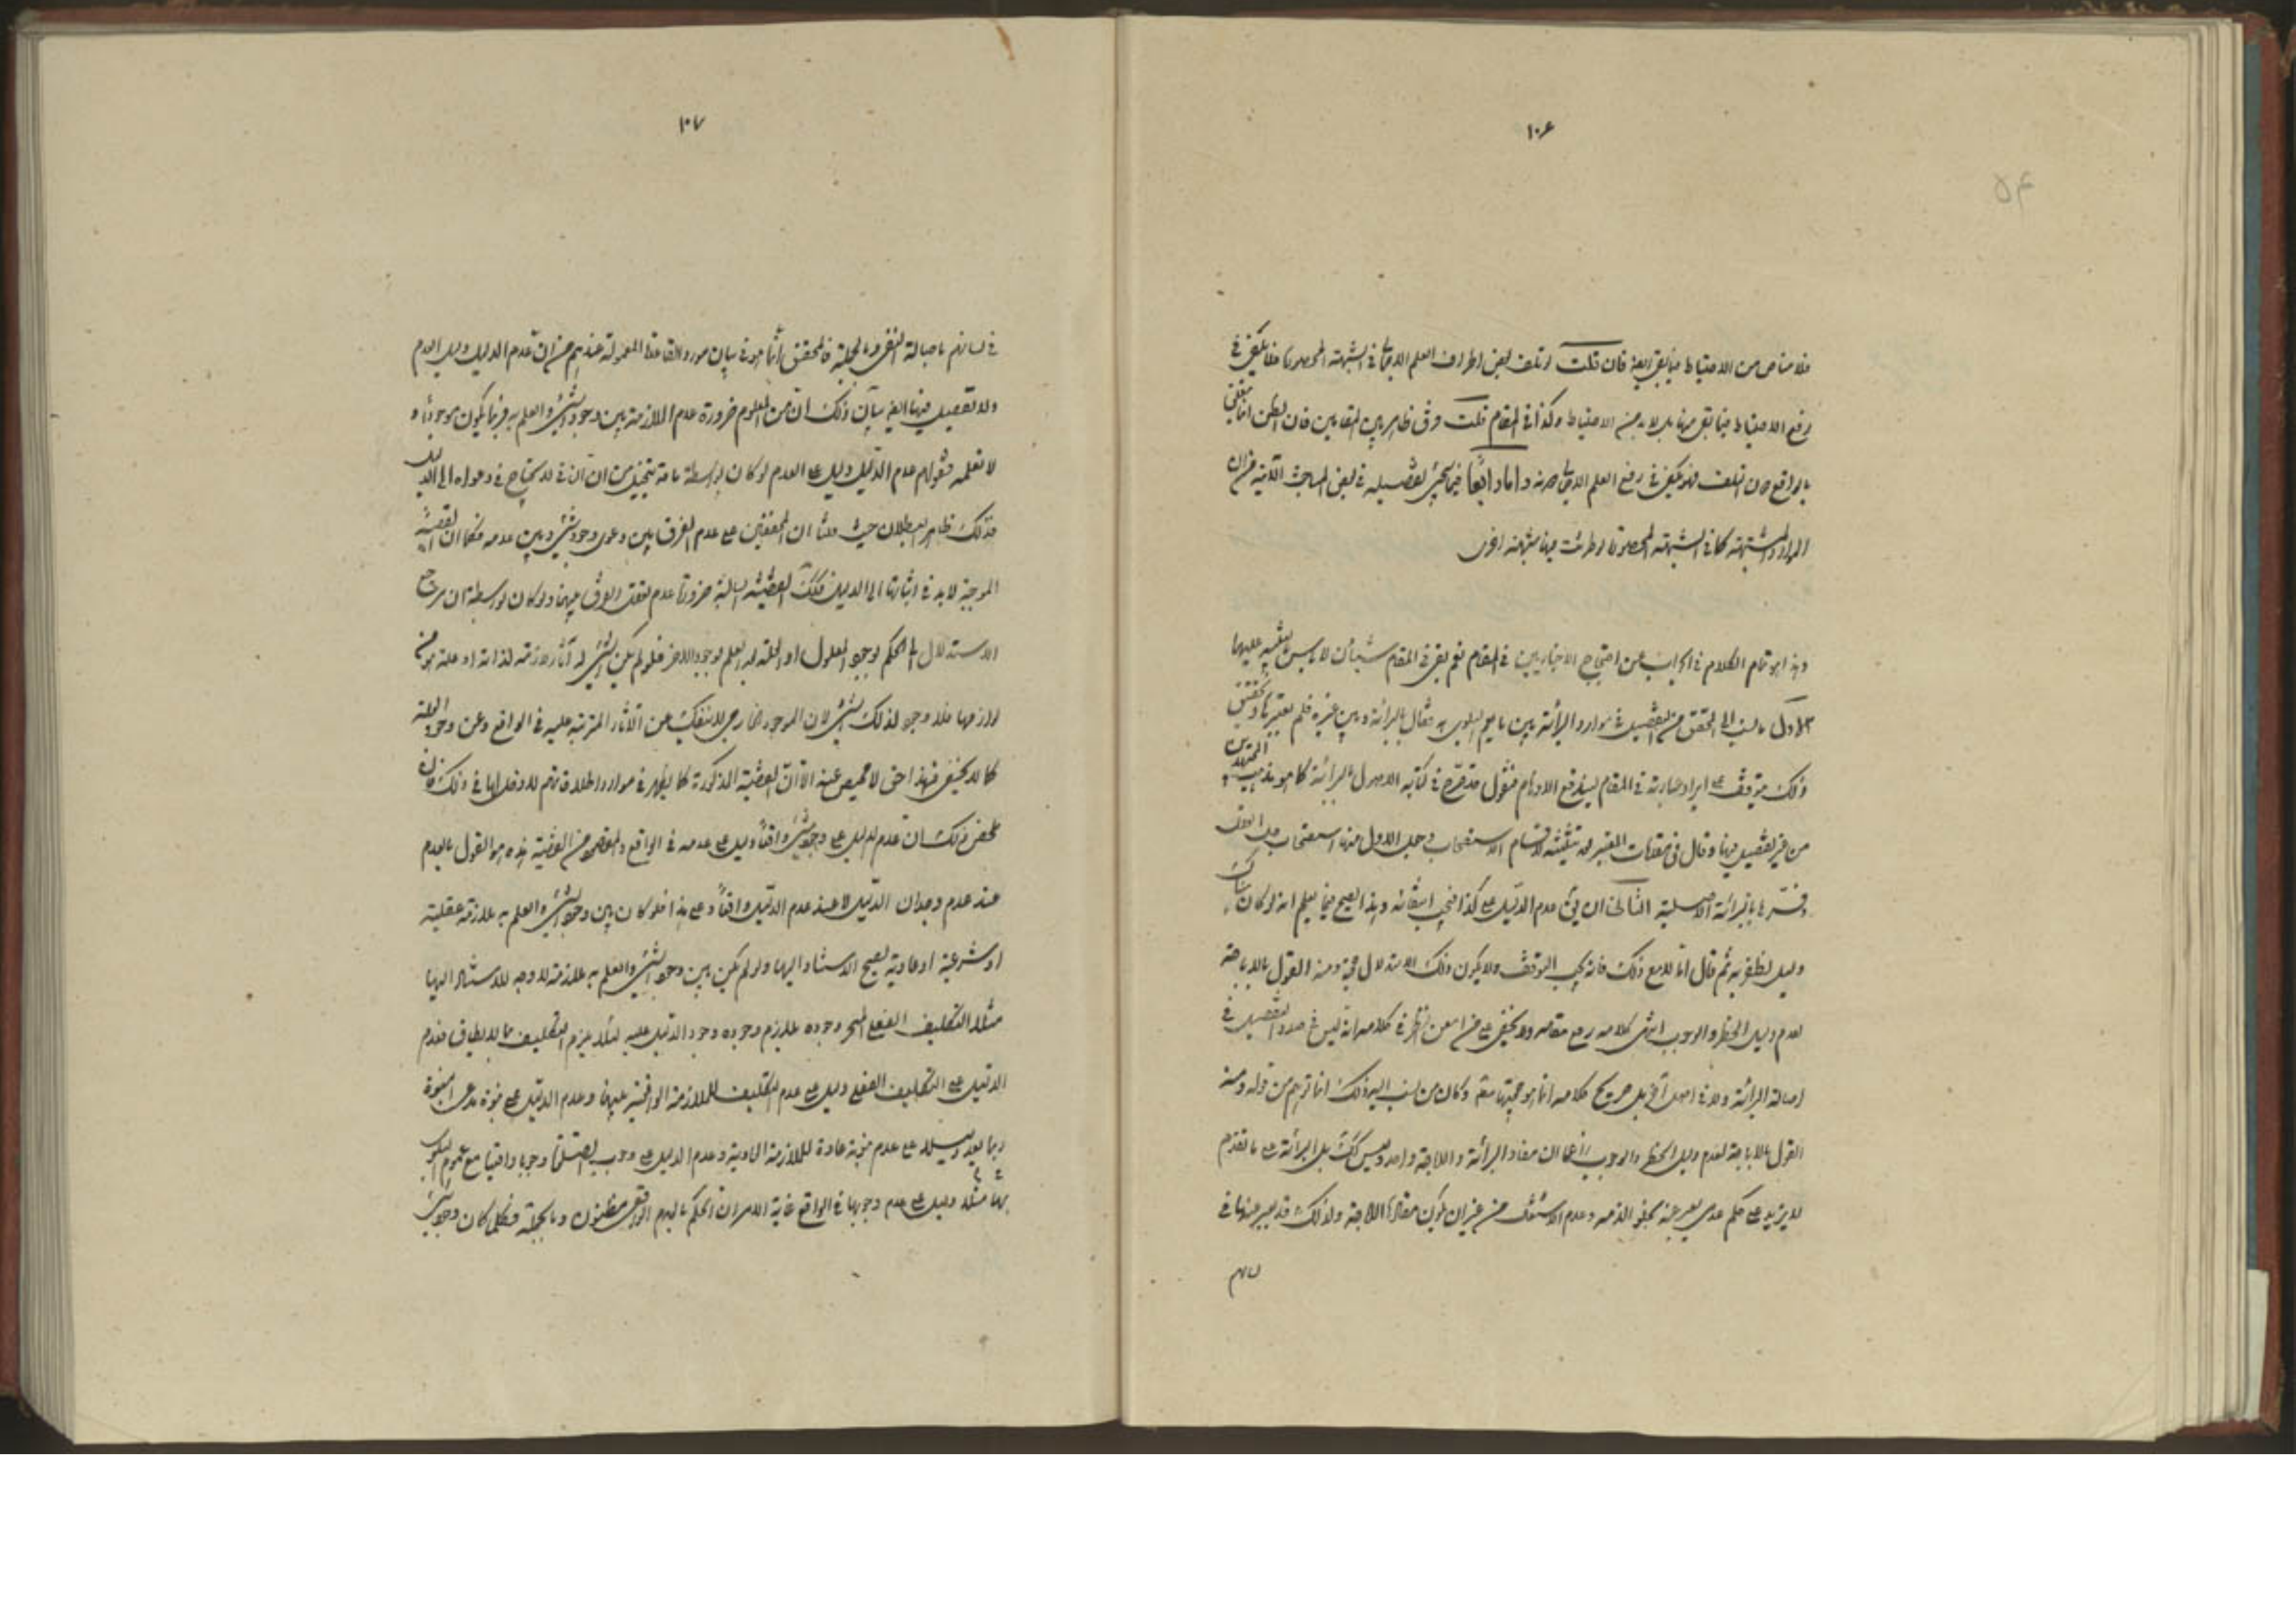 ١٠۶
فلا مناص من الاحتياط فيما بقى ايضا فان قلت لو تلف بعض اطراف العلم الاجمالى فى الشبهة المحصورة فلا يكفى فى
رفع الاحتياط فيما بقى منها بل لا بد من الاحتياط وكذا فى المقام قلت فرق ظاهر بين المقامين فان الظن
بالواقع دون التلف فهو يكفى فى رفع العلم الاجمالى واما رابعا فيما سيجىء تفصيله فى بعض المباحث الآتية من ان
الموارد المشتبهة كما فى الشبهة المحصورة لو طرئت فيها شبهة اخرى
وهذا هو تمام الكلام فى الجواب عن احتجاج الاخباريين فى المقام نعم بقى فى المقام شيئان لا باس بالتنبيه عليهما
الاول ما نسب الى المحقق من التفصيل فى موارد البرائة بين ما يعم به البلوى فقال بالبرائة وبين غيره فلم يعتبرها وتحقيق
ذلك يتوقف على ايراد عبارته فى المقام ليندفع الاوهام فنقول قد صرح فى كتابه الاصول بالبرائة كما هو مذهب المجتهدين
من غير تفصيل فيها وقال فى مقدمات المعتبر بعد تثليثه اقسام الاستصحاب وجعل الاول منها استصحاب حال العقل
وفسره بالبرائة الاصلية الثانى ان يق عدم الدليل على كذا فيجب انتفائه وهذا يصح فيما يعلم انه لو كان هناك
دليل لظفر به ثم قال اما لا مع ذلك فانه يجب التوقف ولا يكون ذلك الاستدلال حجة ومنه القول بالاباحة
لعدم دليل الحظر والوجوب انتهى كلامه رفع مقامه ولا يخفى على من امعن النظر فى كلامه انه ليس فى صدد التفصيل فى
اصالة البرائة ولا فى اصل آخر بل صريح كلامه انما هو حجيتها مط وكان من نسب اليه ذلك انما توهم من قوله ومنه
القول بالاباحة لعدم دليل الحظر والوجوب زعما ان مفاد البرائة والاباحة واحد وليس كك بل البرائة على ما تقدم
لا يزيد على حكم عدمى يعبر عنه بخلو الذمه وعدم الاشتغال من غير ان يكون مفادها الاباحة ولذلك قد يعبر عنها فى
لسانهم
١٠٧
فى لسانهم باصالة النفى وبالجملة فالمحقق انما هو فى بيان مورد القاعدة المعمولة عندهم من ان عدم الدليل دليل العدم
ولا تفصيل فيها ايضا بيان ذلك ان من المعلوم ضرورة عدم الملازمة بين وجود الشىء والعلم به فربما يكون موجودا و
لا نعلمه فقولهم عدم الدليل دليل على العدم لو كان بواسطة ما قد يتخيل من ان النافى لا يحتاج فى دعواه الى الدليل
فذلك ظاهر البطلان حيث ان المحققين على عدم الفرق بين دعوى وجود شىء وبين عدمه فكما ان القضية
الموجبة لا بد فى اثباتها الى الدليل فكك القضية السالبة ضرورة عدم تعقل الفرق بينهما ولو كان بواسطة ان مرجع
الاستدلال الى الحكم بوجود المعلول او العلة بعد العلم بوجود الاخر فلو لم يكن لشىء آثار لازمة لذاته او علة هو من
لوازمها فلا وجود لذلك الشىء لان الموجود الخارجى لا ينفك عن الآثار المترتبة عليه فى الواقع وعن وجود العلة
كما لا يخفى فهذا حق لا محيص عنه الا ان القضية المذكورة كما يظهر فى موارد اطلاقاتهم لا دخل لها فى ذلك فان
ملخص ذلك ان عدم الدليل على وجود شىء واقعا دليل على عدمه فى الواقع والمقصود من القضية هذه هو القول بالعدم
عند عدم وجدان الدليل لا عند عدم الدليل واقعا وعلى هذا فلو كان بين وجود الشىء والعلم به ملازمة عقلية
او شرعية او عادية يصح الاستناد اليها ولو لم يكن بين وجود الشىء والعلم به ملازمة لا وجه للاستناد اليها
مثلا التكليف الفعلى المنجز وجوده يلازم وجوده وجود الدليل عليه لئلا يلزم التكليف بما لا يطاق فعدم
الدليل على التكليف الفعلى دليل على عدم التكليف للملازمة الواقعية بينهما وعدم الدليل على نبوة مدعى النبوة
ربما يعد دليلا على عدم نبوته عادة للملازمة العادية وعدم الدليل على وجوب وجوبا واقعيا مع عموم البلوى
بها مثلا دليل على عدم وجوبها فى الواقع غاية الامر ان الحكم بالعدم الواقعى مظنون وبالجملة فكلما كان وجود شىء